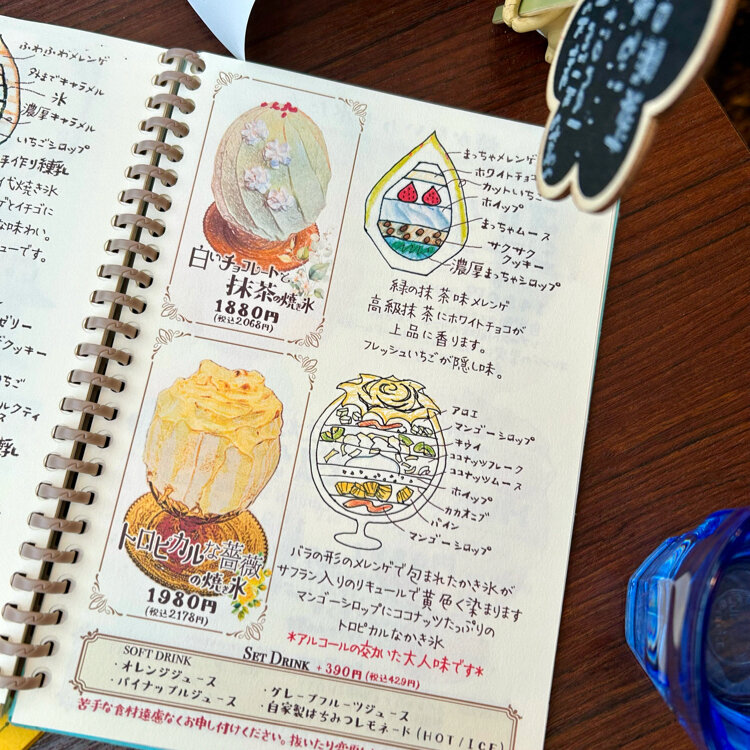 ふわふわメレンゲ
外まで キャラメル
氷
濃厚キャラメル
いちごシロップ
手作り練乳
代焼き氷
ゲとイチゴに
な味わい。
ューです。
ゼリー
クッキー
いちご
ルクティ
ース
練乳
白いチョコレートと
抹茶の焼き氷
1880円
(税込2,068円)
まっちゃメレンゲ
ホワイトチョコ
カットいちご
ホイップ
まっちゃムース
サクサク
クッキー
濃厚まっちゃシロップ
緑の抹茶味メレンゲ
高級抹茶にホワイトチョコが
上品に香ります。
フレッシュいちごが隠し味。
トロピカルな薔薇
の焼き氷
1980円
(税込2,178円)
アロエ
マンゴーシロップ
キウイ
ココナッツフレーク
ココナッツムース
ホイップ
カカオニブ
パイン
マンゴーシロップ
バラの形のメレンゲで包まれたかき氷が
サフラン入りのリキュールで黄色く染まります
マンゴーシロップにココナッツたっぷりの
トロピカルなかき氷
*アルコールの効いた大人味です*
SOFT DRINK
SET DRINK +390円(税込429円)
・オレンジジュース
・グレープフルーツジュース
・パイナップルジュース
・自家製はちみつレモネード(HOT/ICE)
苦手な食材遠慮なくお申し付けください。抜いたり